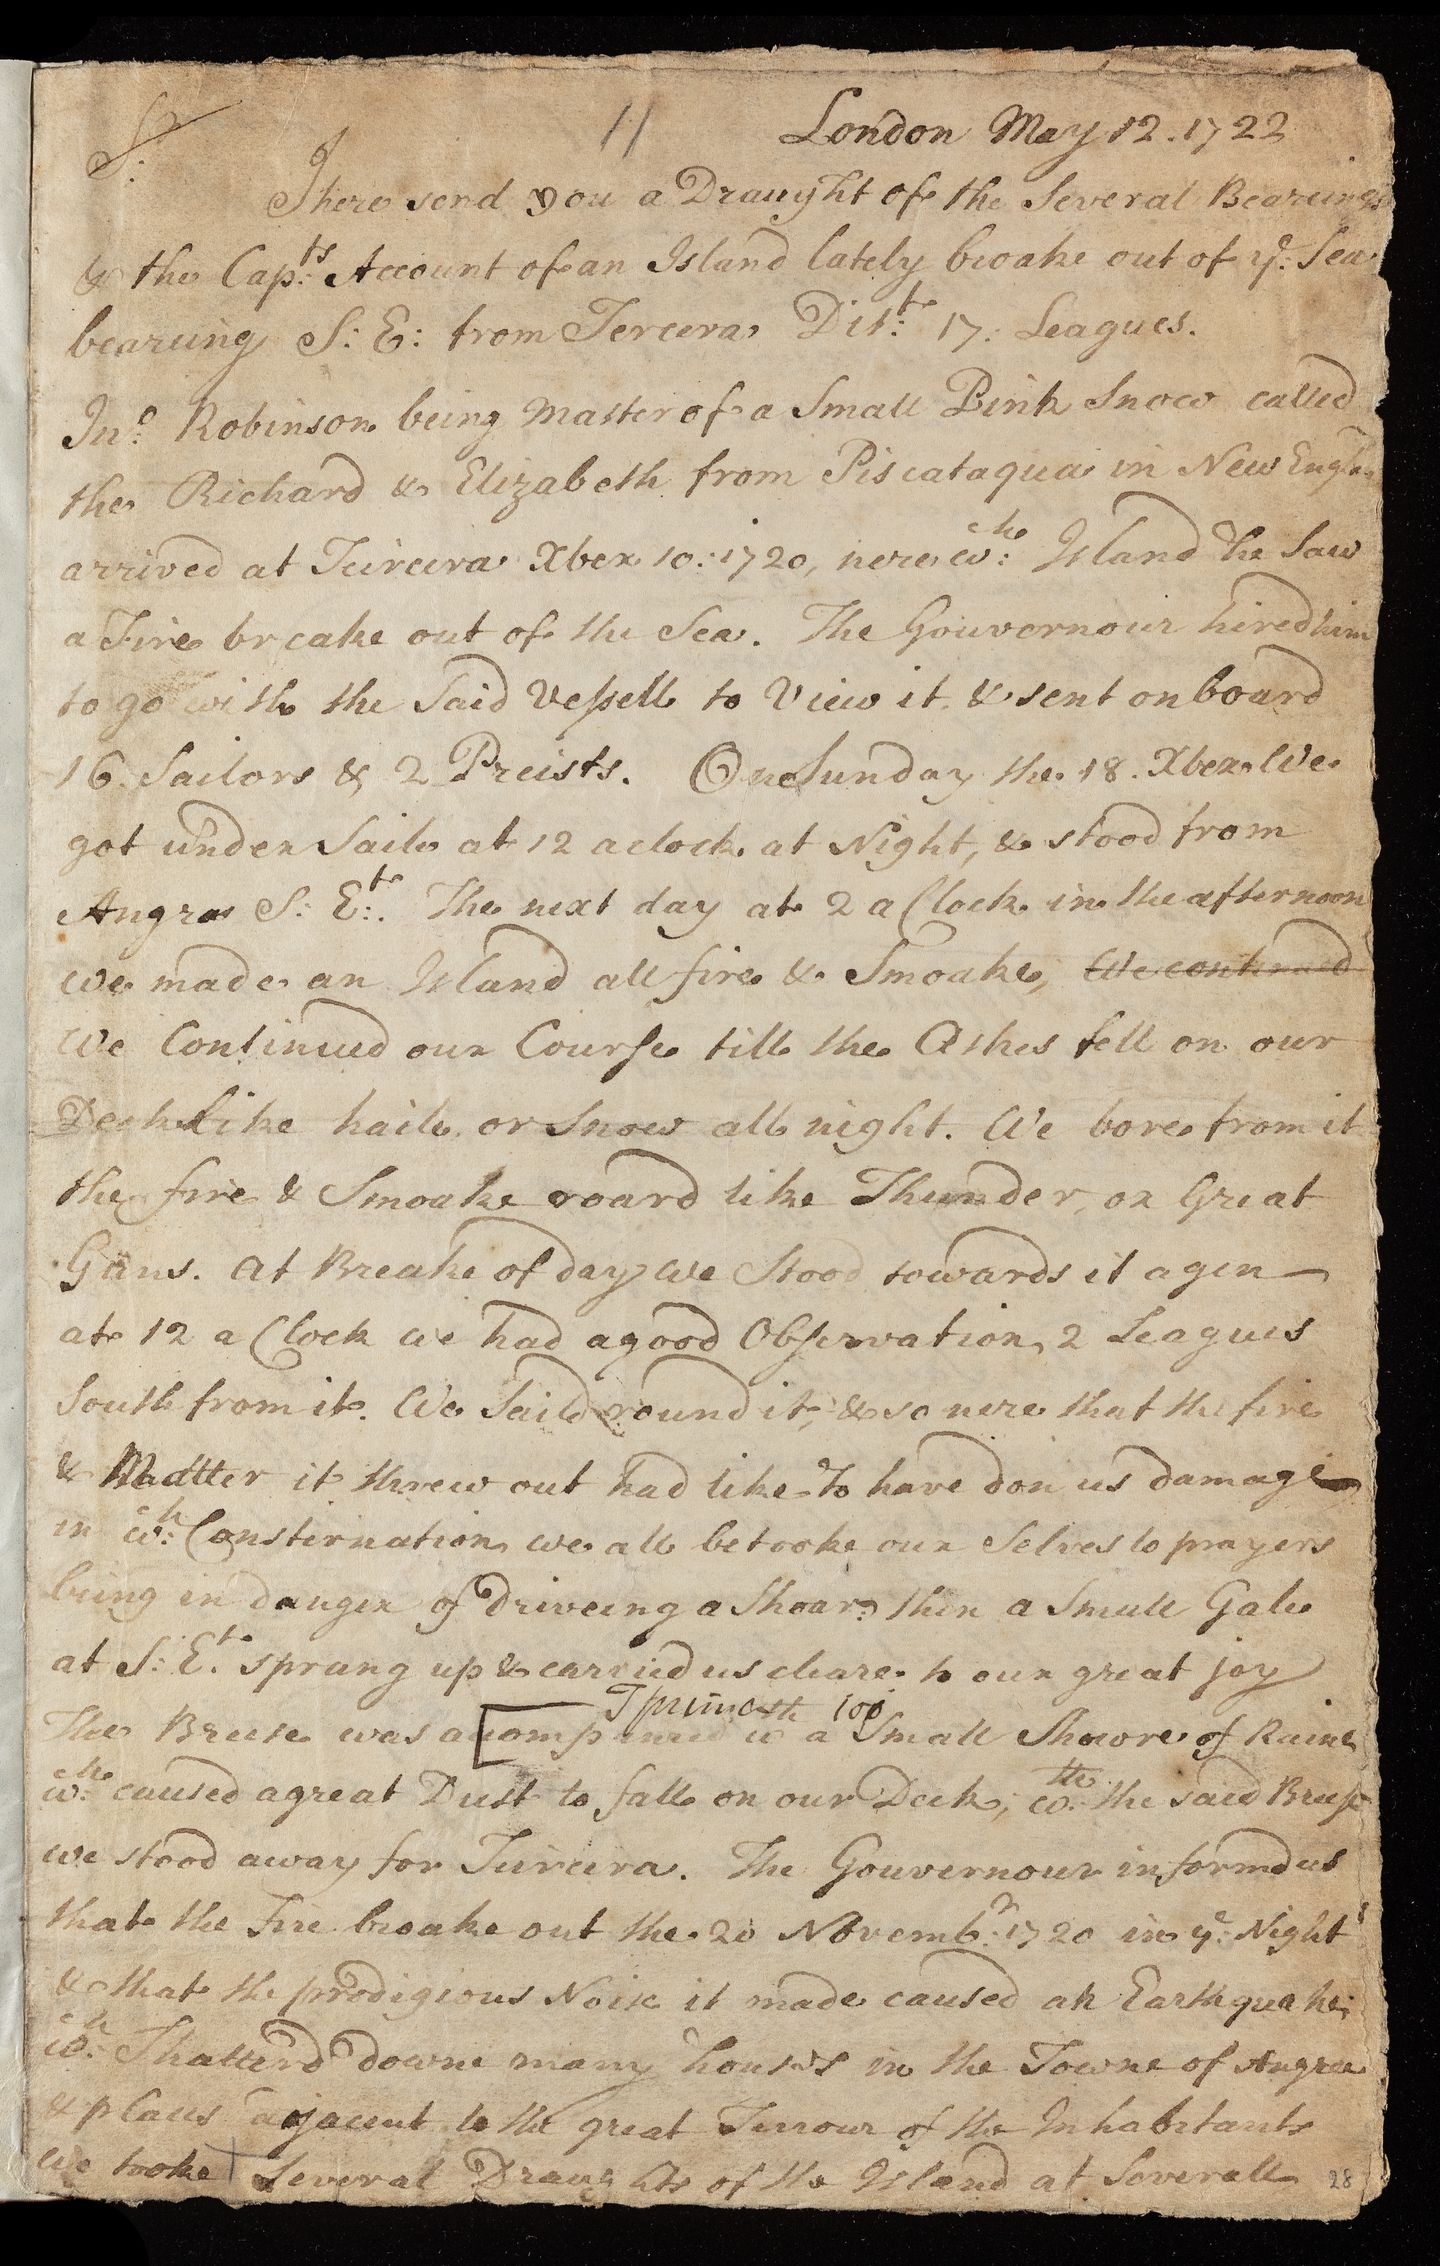 11
London May 12. 1722
Sr:
I here send you a Draught of the Several Beareings
& the Capts: Account of an Island lately broake out of ye: Sea
bearung S: E: from Tercera Dist: 17. Leagues.
Jno: Robinson being Master of a Small Pink Snow called
the Richard & Elizabeth from Piscataqua in New Engla
arrived at Tircera Xber 10: 1720, nere wch: Island he Saw
a Fire breake out of the Sea. The Gouvernour hired him
to go with the Said Vessell to View it & sent on board
16. Sailors & 2 Preists. One Sunday the 18. Xber We
got under Saile at 12 a clock at Night, & stood from
Angra S: Et: The next day at 2 a Clock in the afternoon
we made an Island all fire & Smoake, We continued
We Continued our Course till the Ashes fell on our
Deck like haile or Snow all night. We bore from it
the fire & Smoake roard like Thunder, or Great
Guns. At Breake of day we Stood towards it agen
at 12 a Clock we had a good Observation, 2 Leagues
South from it. We Saild round it, & so nere that the fire
& Matter it threw out had like To have don us damage
in wch: Consternation we all betooke our Selves to prayers
being in danger of Driveing a Shoar: then a Small Gale
at S: Et: sprang up & carried us cleare to our great joy
The Breese was accompanied w a Small Showre of Raine
wch: caused a great Dust to fall on our Deck, wth: the said Breese
we stood away for Tircera. The Gouvernour informd us
that the Fire broake out the 20 Novembr: 1720 in ye: Night
& that the prodigious Noise it made caused an Earthquake;
wch: Shatterd downe many houses in the Towne of Angra
& places adjacent to the great Terrour of the Inhabitants
We tooke Several Draughts of the Island at Severall
28